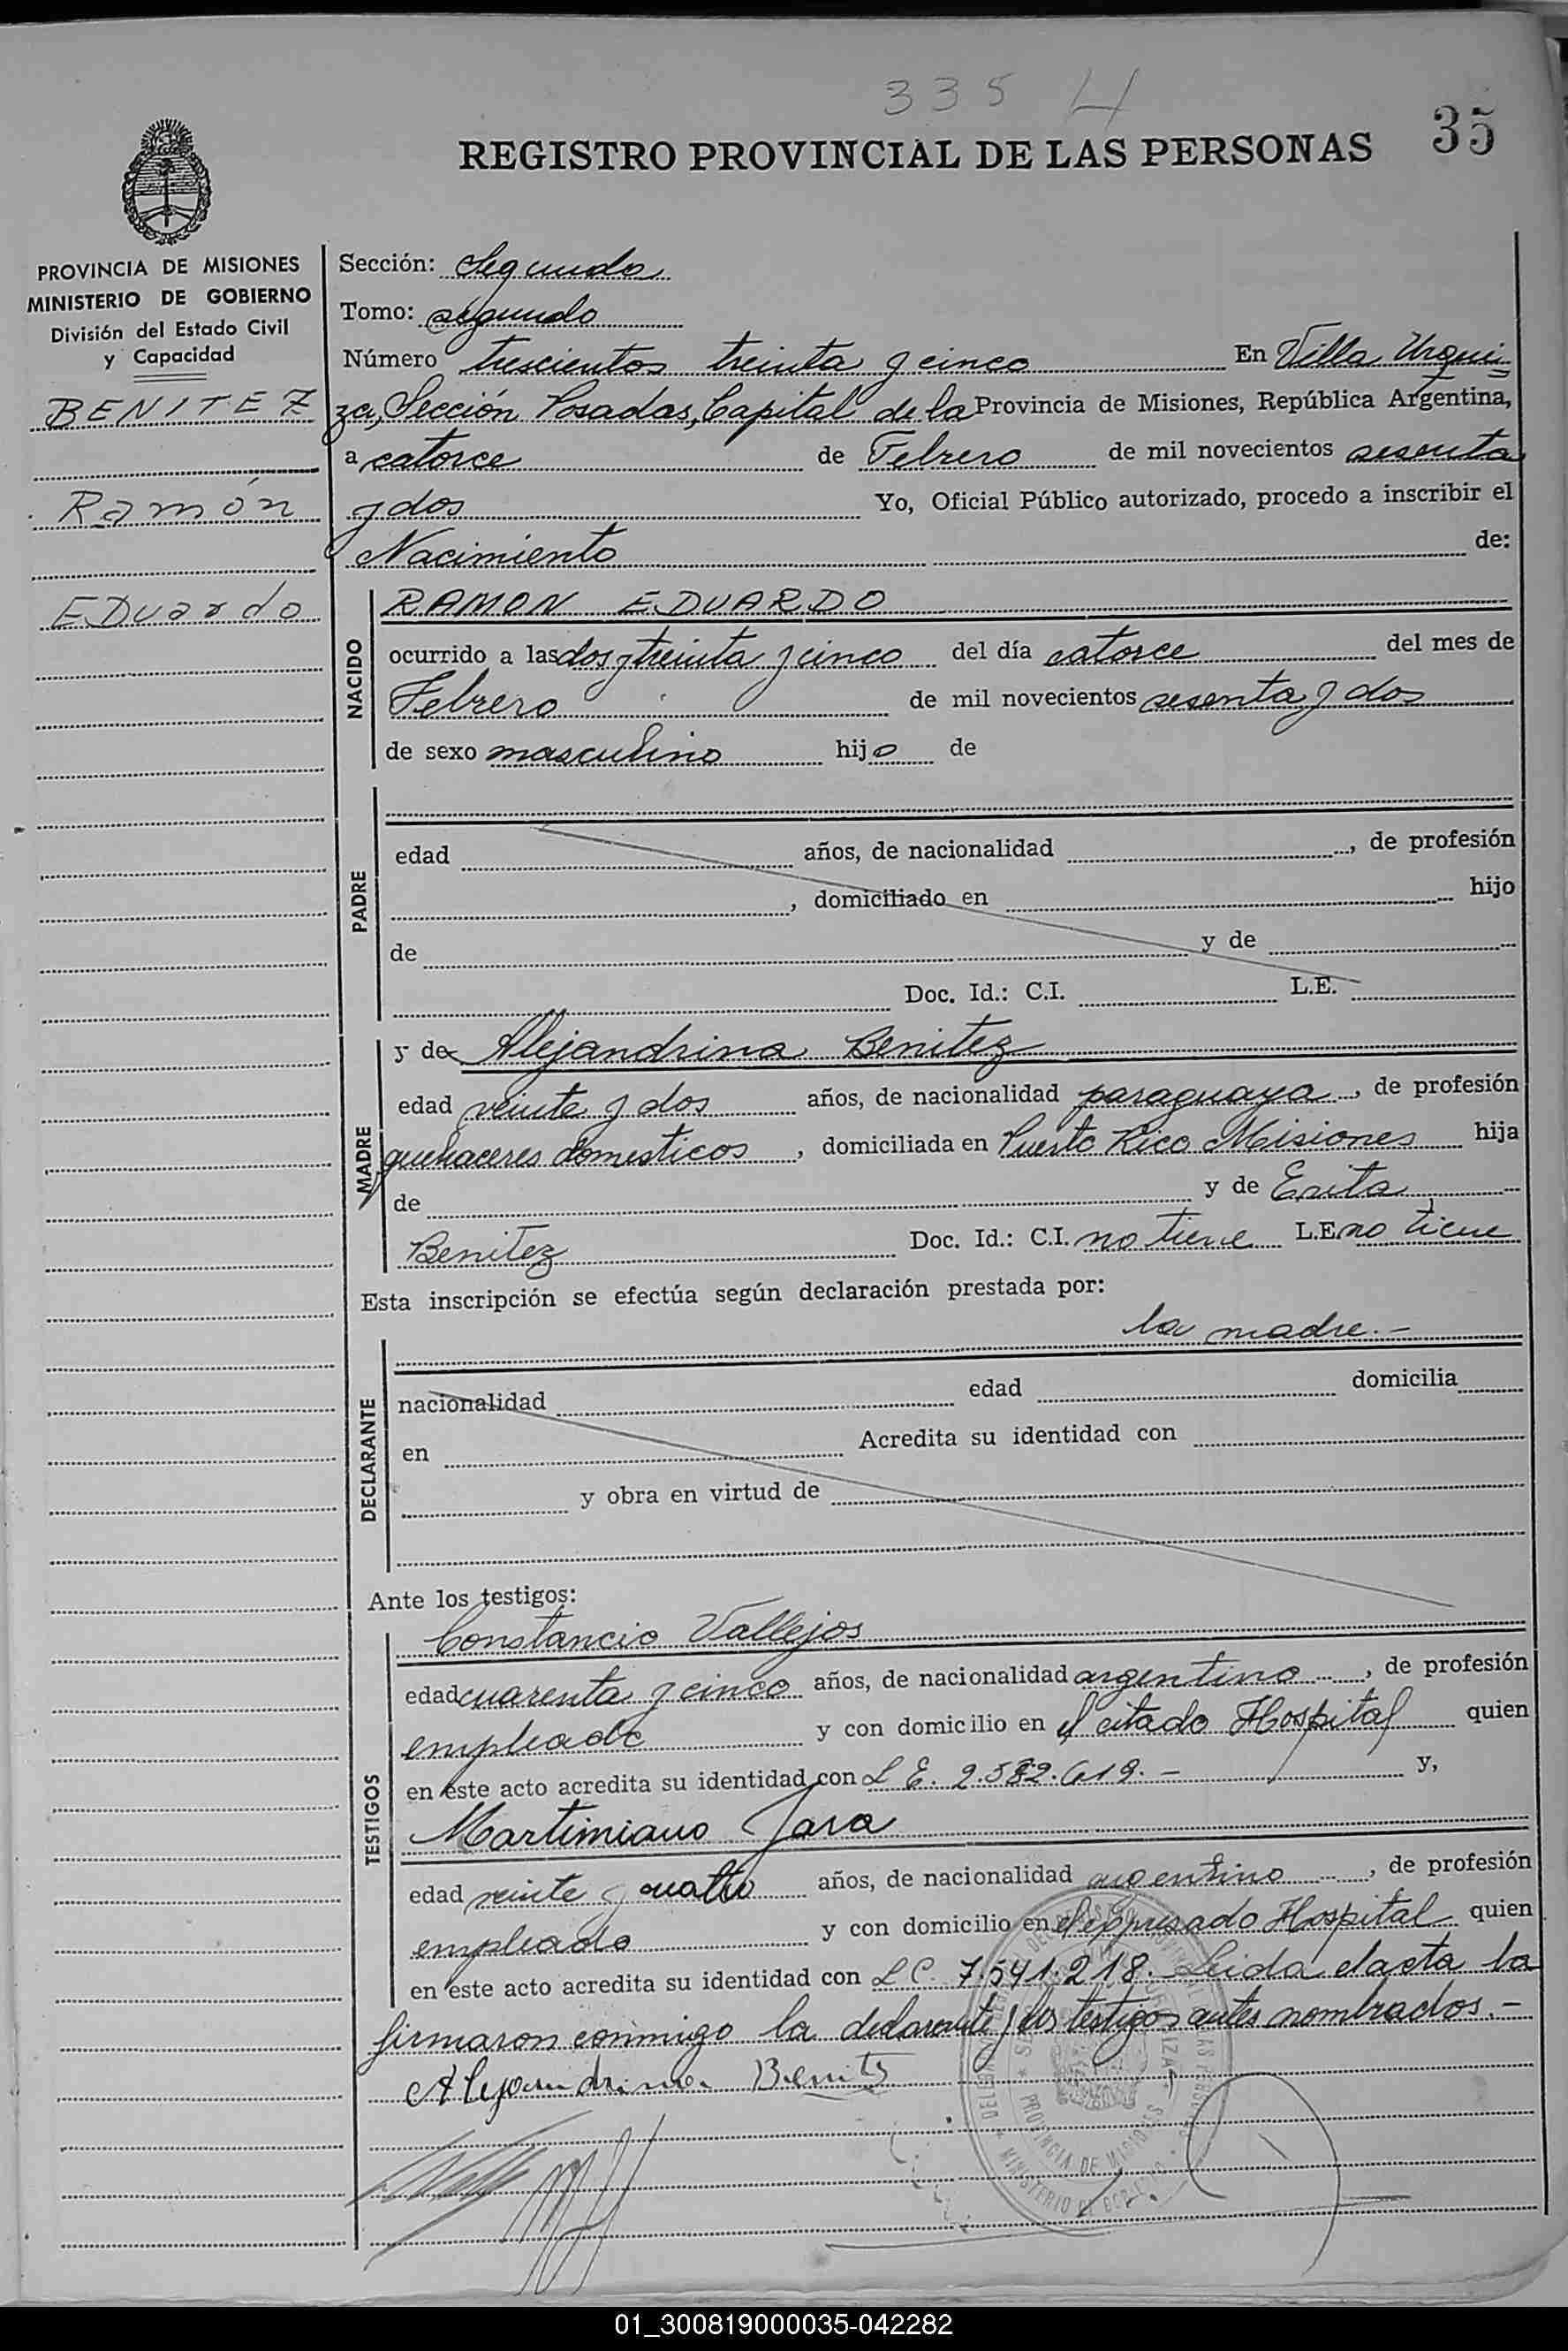 335 4
35
REGISTRO PROVINCIAL DE LAS PERSONAS
PROVINCIA DE MISIONES
MINISTERIO DE GOBIERNO
División del Estado Civil
y Capacidad
BENITEZ
Ramón
EDuardo
Sección: Segunda
Tomo: segundo
Número trescientos treinta y cinco En Villa Urqui=
za, Sección Posadas, Capital de la Provincia de Misiones, República Argentina,
a catorce de Febrero de mil novecientos sesenta
y dos Yo, Oficial Público autorizado, procedo a inscribir el
Nacimiento de:
NACIDO
RAMON EDUARDO
ocurrido a las dos y treinta y cinco del día catorce del mes de
Febrero de mil novecientos sesenta y dos
de sexo masculino hijo de
PADRE
edad años, de nacionalidad , de profesión
, domiciliado en hijo
de y de
Doc. Id.: C.I. L.E.
MADRE
y de Alejandrina Benitez
edad veinte y dos años, de nacionalidad paraguaya, de profesión
quehaceres domesticos, domiciliada en Puerto Rico Misiones hija
de y de
Benitez Doc. Id.: C.I. no tiene L.E no tiene
Esta inscripción se efectúa según declaración prestada por:
la madre.-
DECLARANTE
nacionalidad edad domicilia
en Acredita su identidad con
y obra en virtud de
Ante los testigos:
TESTIGOS
Constancio Vallejos
edad cuarenta y cinco años, de nacionalidad argentino, de profesión
empleado y con domicilio en el citado Hospital quien
en este acto acredita su identidad con L E. 2.582.619.- y,
Martimiano Jara
edad veinte y cuatro años, de nacionalidad argentino, de profesión
empleado y con domicilio en el expresado Hospital quien
en este acto acredita su identidad con L E. 7.541.218. Leida el acta la
firmaron conmigo la declarante y los testigos antes nombrados.-
Alejandrina Benits
PROVINCIA DE MISIONES
MINISTERIO DE GOBIERNO
01_300819000035-042282